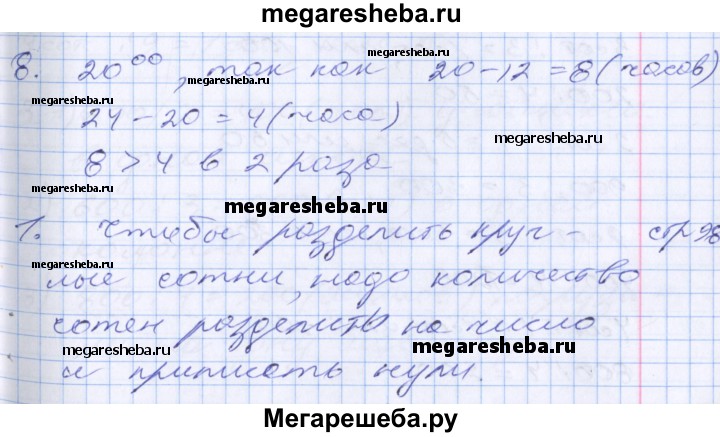 megaresheba.ru
megaresheba.ru
8. 20⁰⁰, так как 20-12=8(часов)
megaresheba.ru
24-20=4(часа)
megaresheba.ru
8>4 в 2 раза
megaresheba.ru
1. Чтобы разделить круг- стр 98
megaresheba.ru
лые сотни, надо количество
сотен разделить на число
megaresheba.ru
megaresheba.ru
и приписать нули.
Мегарешеба.ру